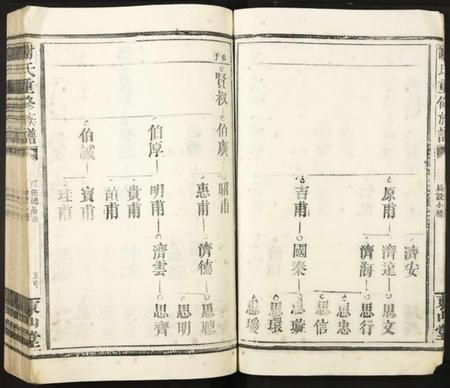 謝氏重修族譜
東山堂
濟安
原甫 濟遠 思文
濟海 思行
思忠
思信
吉甫 國泰 思璇
思環
思瑷
賢叔 伯廣 昭甫
惠甫 濟德 思聰
思明
伯厚 明甫 濟雲 思齊
貴甫
伯誠 賓甫
珪甫
謝氏重修族譜
東山堂